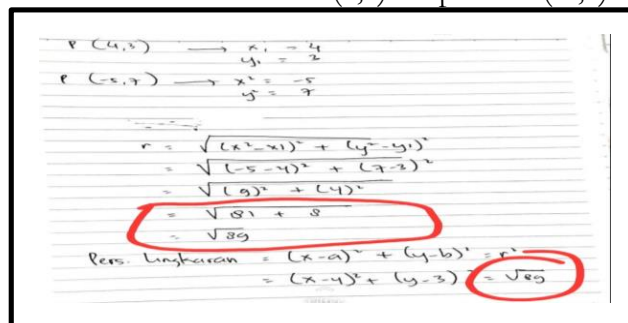 P (4,3) → x₁ = 4
y₁ = 3
P (-5,7) → x² = -5
y² = 7
r = √(x²-x1)² + (y²-y1)²
= √(-5-4)² + (7-3)²
= √(9)² + (4)²
= √81 + 8
= √89
Pers. Lingkaran = (x-a)² + (y-b)² = r²
= (x-4)² + (y-3)² = √89